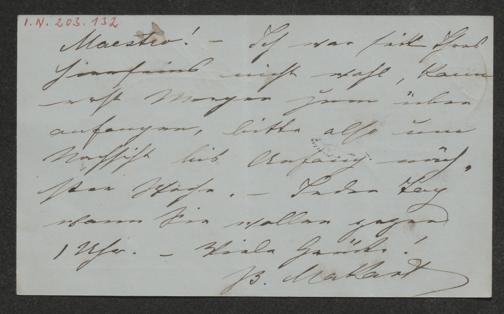 I.N. 203.132
Maestro! – Ich war seit Ihrem
Hiersein nicht wohl, kann
erst Morgen zum üben
anfangen, bitte also um
Nachsicht bis Anfang näch„
ster Woche. – Jeden Tag
wann Sie wollen gegen
1 Uhr. – Viele Grüße!
B. Makart